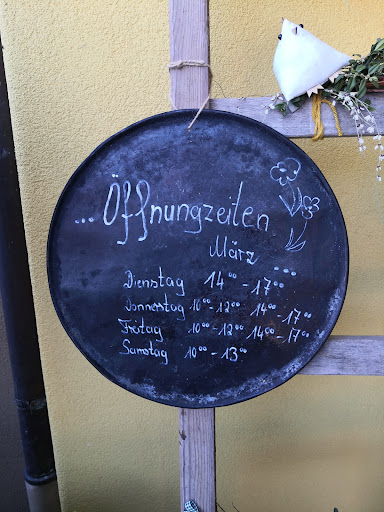 ...Öffnungzeiten
März ...
Dienstag 14⁰⁰ - 17⁰⁰
Donnerstag 10⁰⁰ - 12⁰⁰ 14⁰⁰ - 17⁰⁰
Freitag 10⁰⁰ - 12⁰⁰ 14⁰⁰ - 17⁰⁰
Samstag 10⁰⁰ - 13⁰⁰